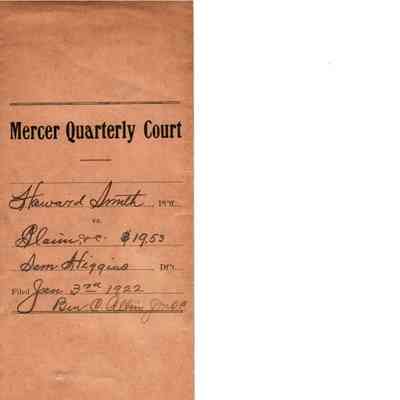 Mercer Quarterly Court
Howard Smith PFF.
vs.
Claim &c. $19.53
Sam Higgins DFT.
Filed Jan 3rd 1922
Ben C. Allin